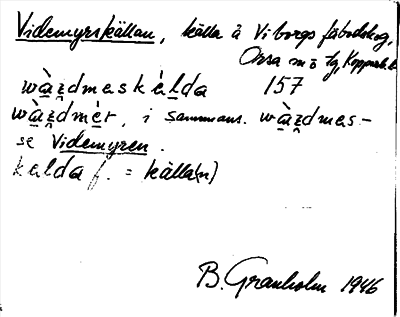 Videmyrskällan, källa å Viborgs fäbodskog,
Orsa sn o tg, Kopparb. l.
wàzdmeskælda 157
wàzdmèr, i sammans. wàzdmes-
se Videmyren.
kælda f. = källa(n)
B. Granholm 1946